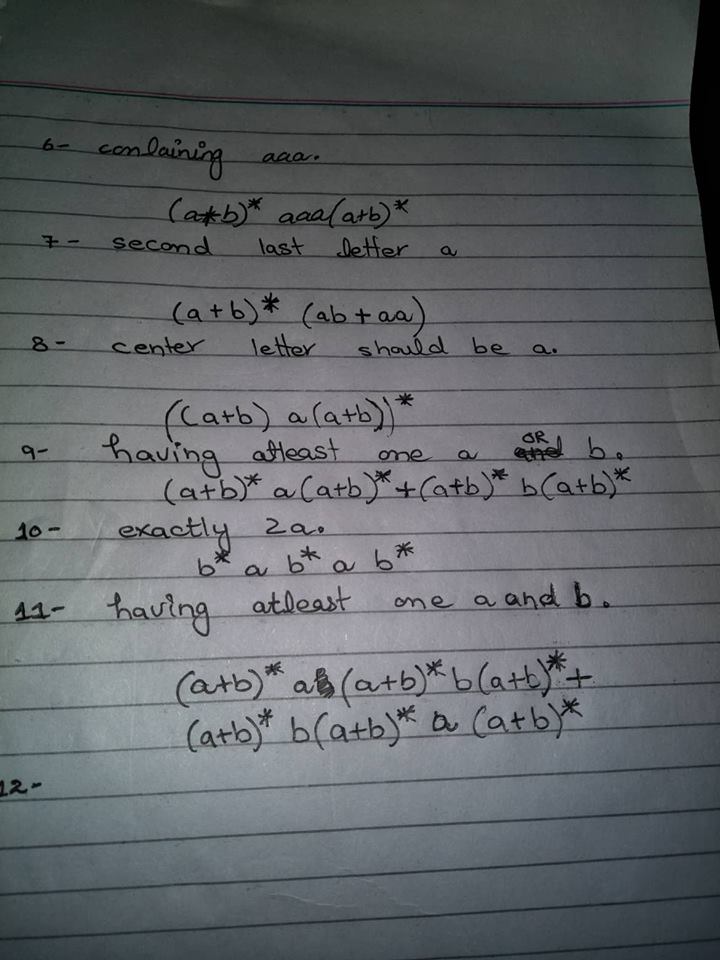 6- containing aaa.
(a+b)* aaa(a+b)*
7- second last letter a
(a+b)* (ab+aa)
8- center letter should be a.
((a+b) a(a+b))*
9- having atleast one a OR b.
(a+b)* a(a+b)*+(a+b)* b(a+b)*
10- exactly 2a.
b* a b* a b*
11- having atleast one a and b.
(a+b)* a (a+b)* b(a+b)*+
(a+b)* b(a+b)* a (a+b)*
12-